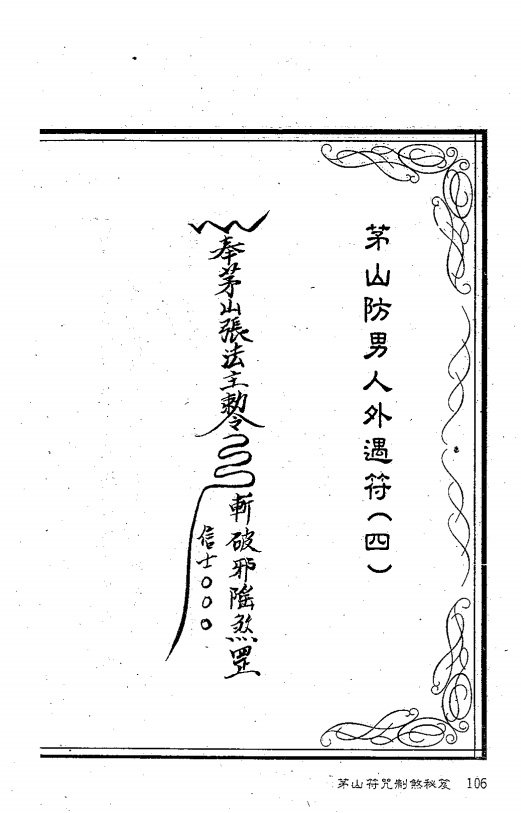 茅山防男人外遇符(四)
奉茅山張法主勅令
斬破邪陰煞罡
信士○○○
茅山符咒制煞秘笈 106